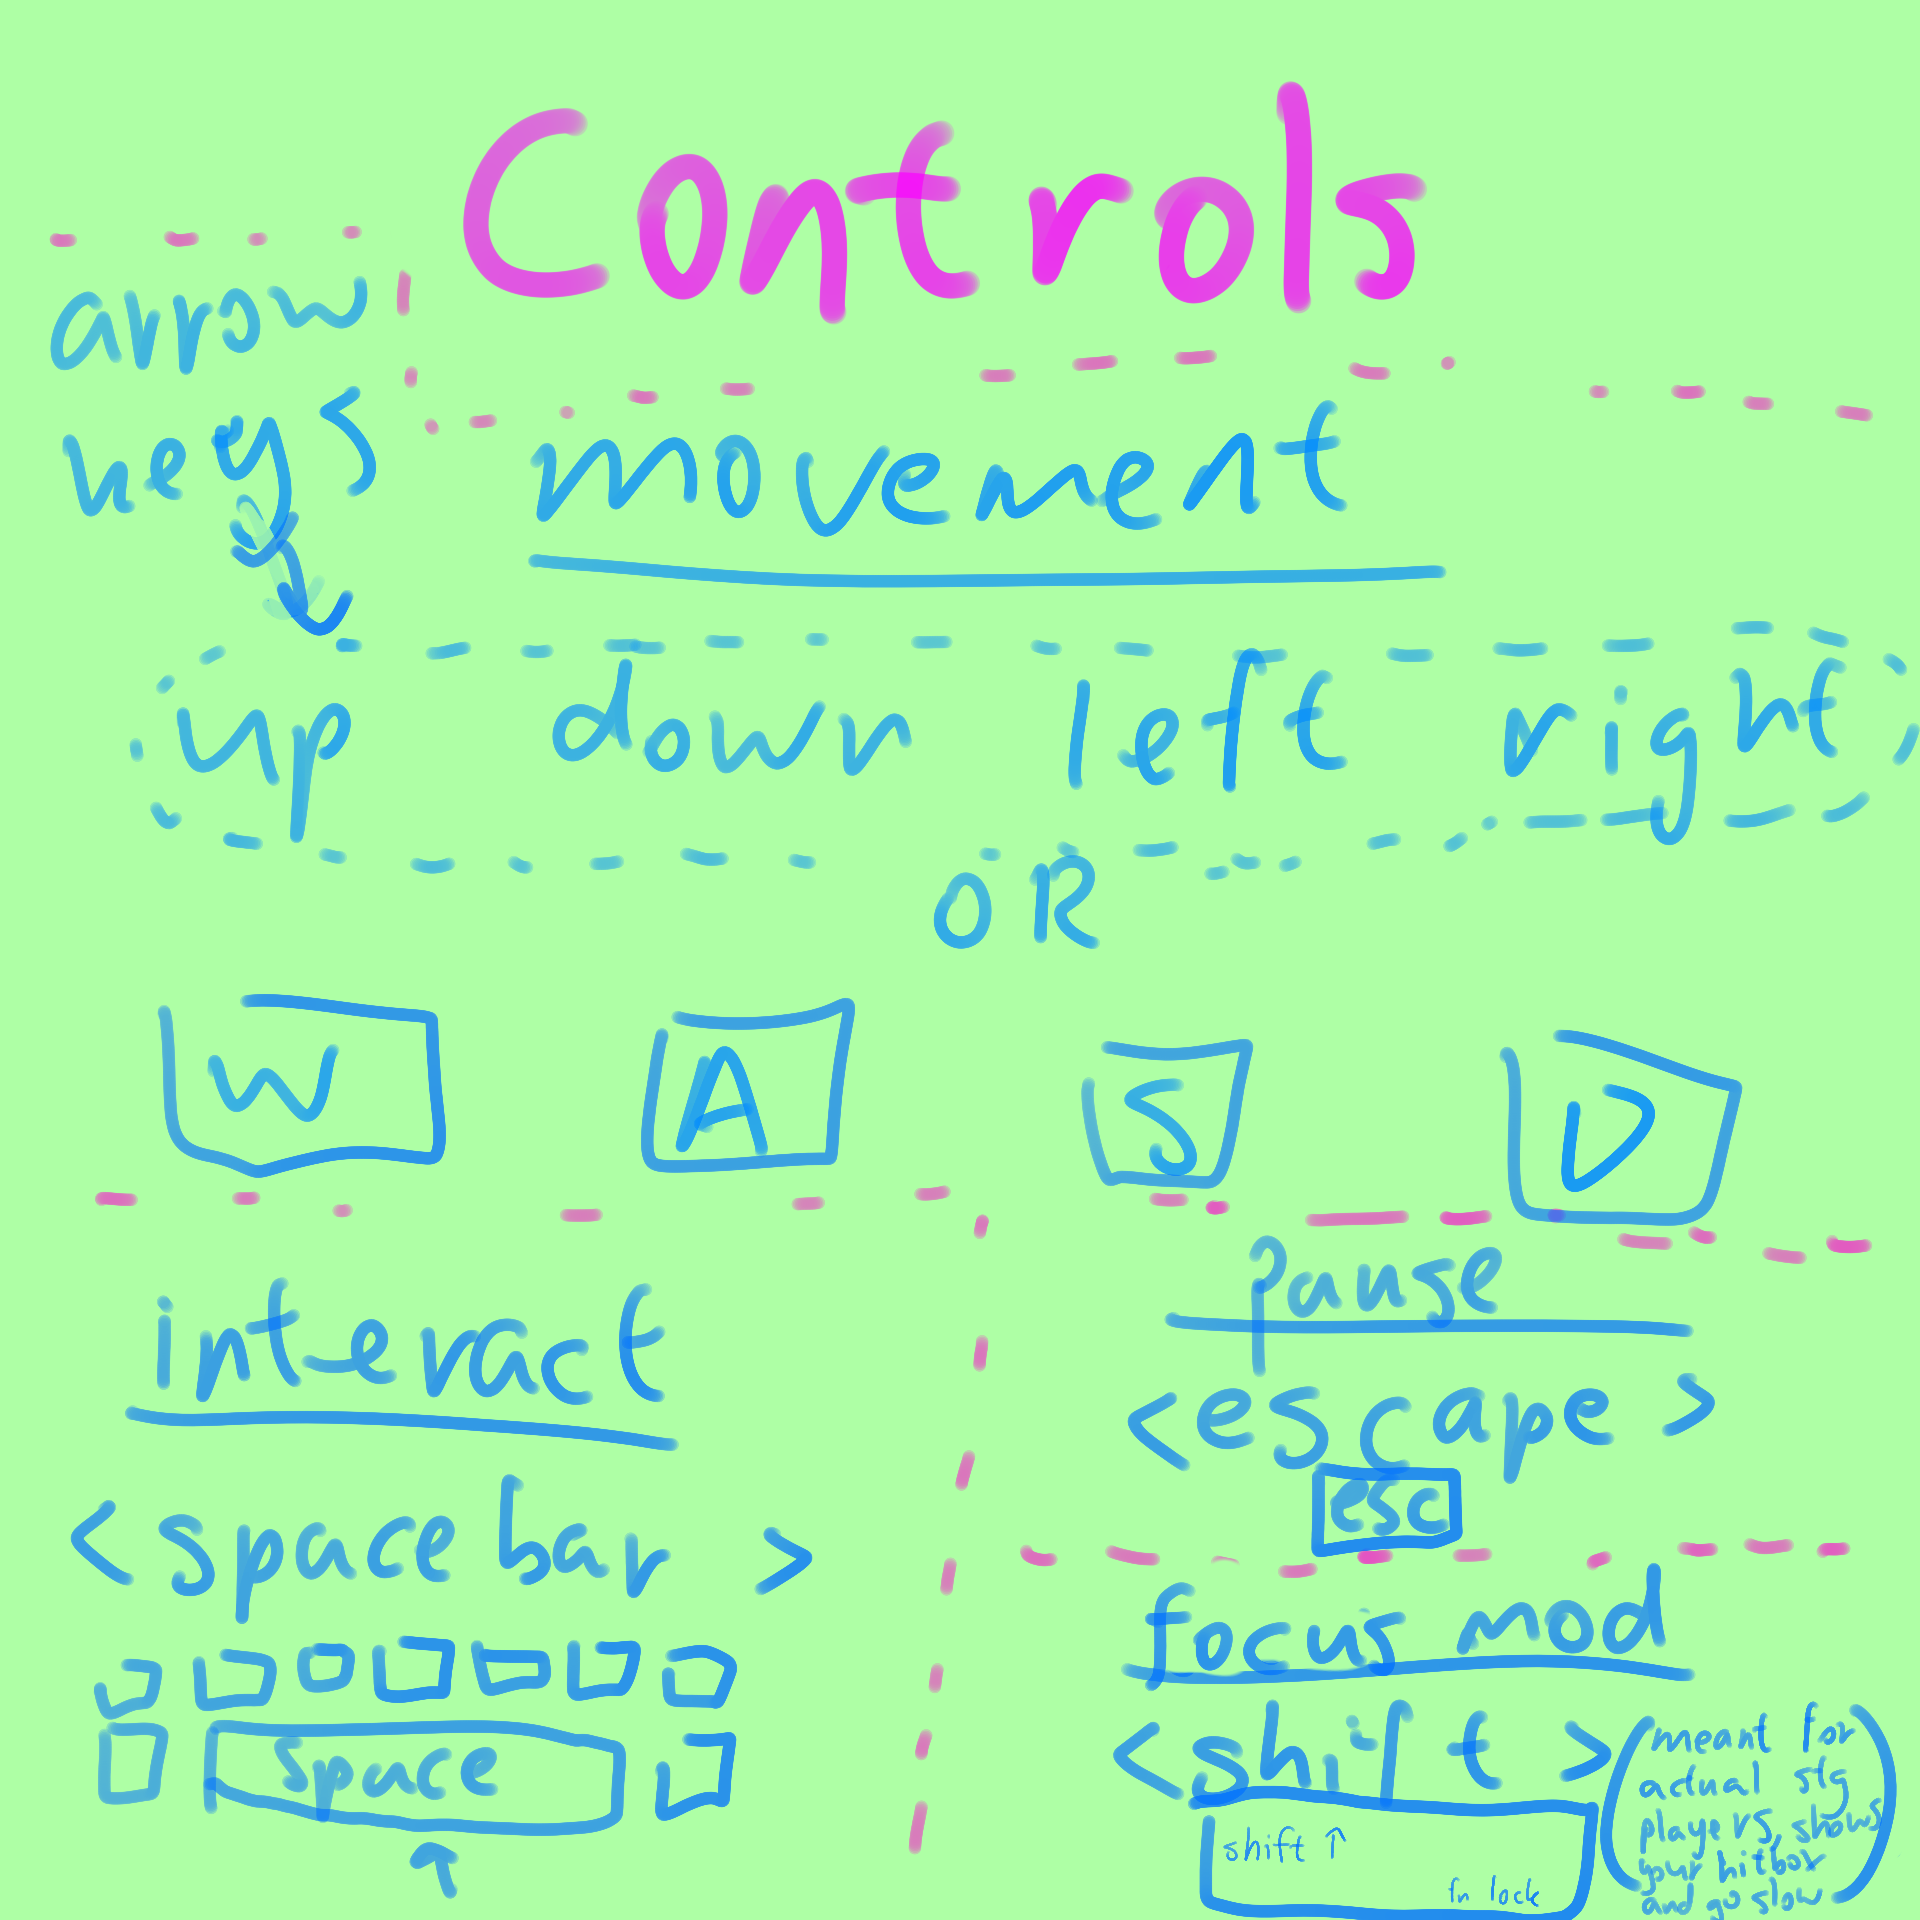 Controls
arrow
keys
movement
up down left right
OR
W A S D
interact
<spacebar>
space
pause
<escape>
esc
focus mod
<shift>
shift ↑
fn lock
(meant for
actual stg
players, shows
your hitbox
and go slow)